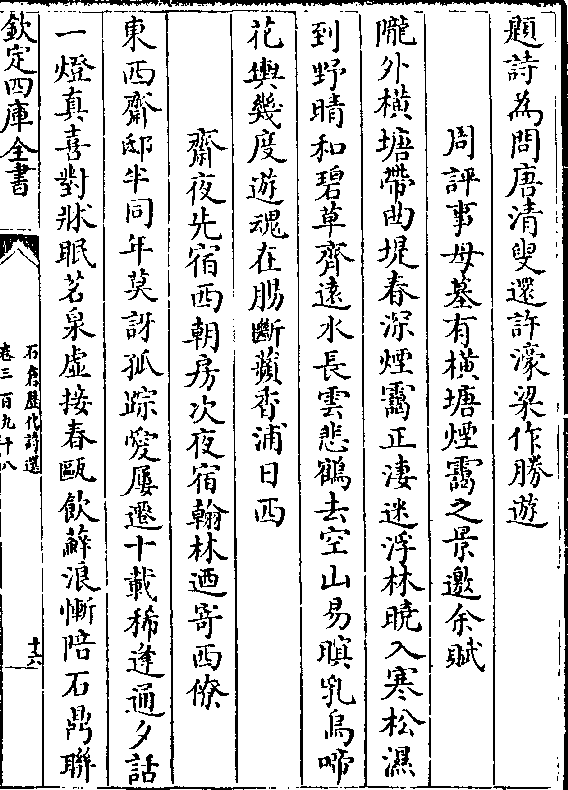 題詩為問唐清叟還許濠梁作勝遊
周評事母墓有橫塘煙靄之景邀余賦
隴外橫塘帶曲堤春深煙靄正淒迷浮林曉入寒松濕
到野晴和碧草齊遠水長雲悲鶴去空山易暝乳烏啼
花輿幾度遊魂在腸斷蘋香浦日西
齋夜先宿西朝房次夜宿翰林廼寄西僚
東西齋邸半同年莫訝孤踪愛屢遷十載稀逢通夕話
一燈真喜對牀眠茗泉虛接春甌飲蘚浪慚陪石鼎聯
欽定四庫全書
石倉歷代詩選
卷三百九十八
十六